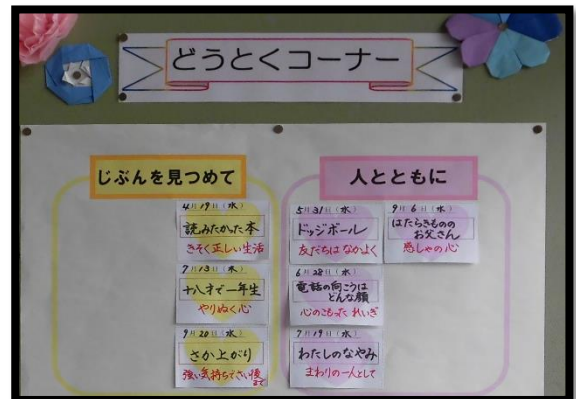 どうとくコーナー
じぶんを見つめて
4月19日(水)
読みたかった本
きそく正しい生活
7月13日(木)
十八才で一年生
やりぬく心
9月20日(水)
さか上がり
強い気持ちでさい後まで
人とともに
5月31日(水)
ドッジボール
友だちは なかよく
6月28日(水)
電話の向こうは
どんな顔
心のこもった れいぎ
7月19日(水)
わたしのなやみ
まわりの一人として
9月6日(水)
はたらきものの
お父さん
感しゃの心